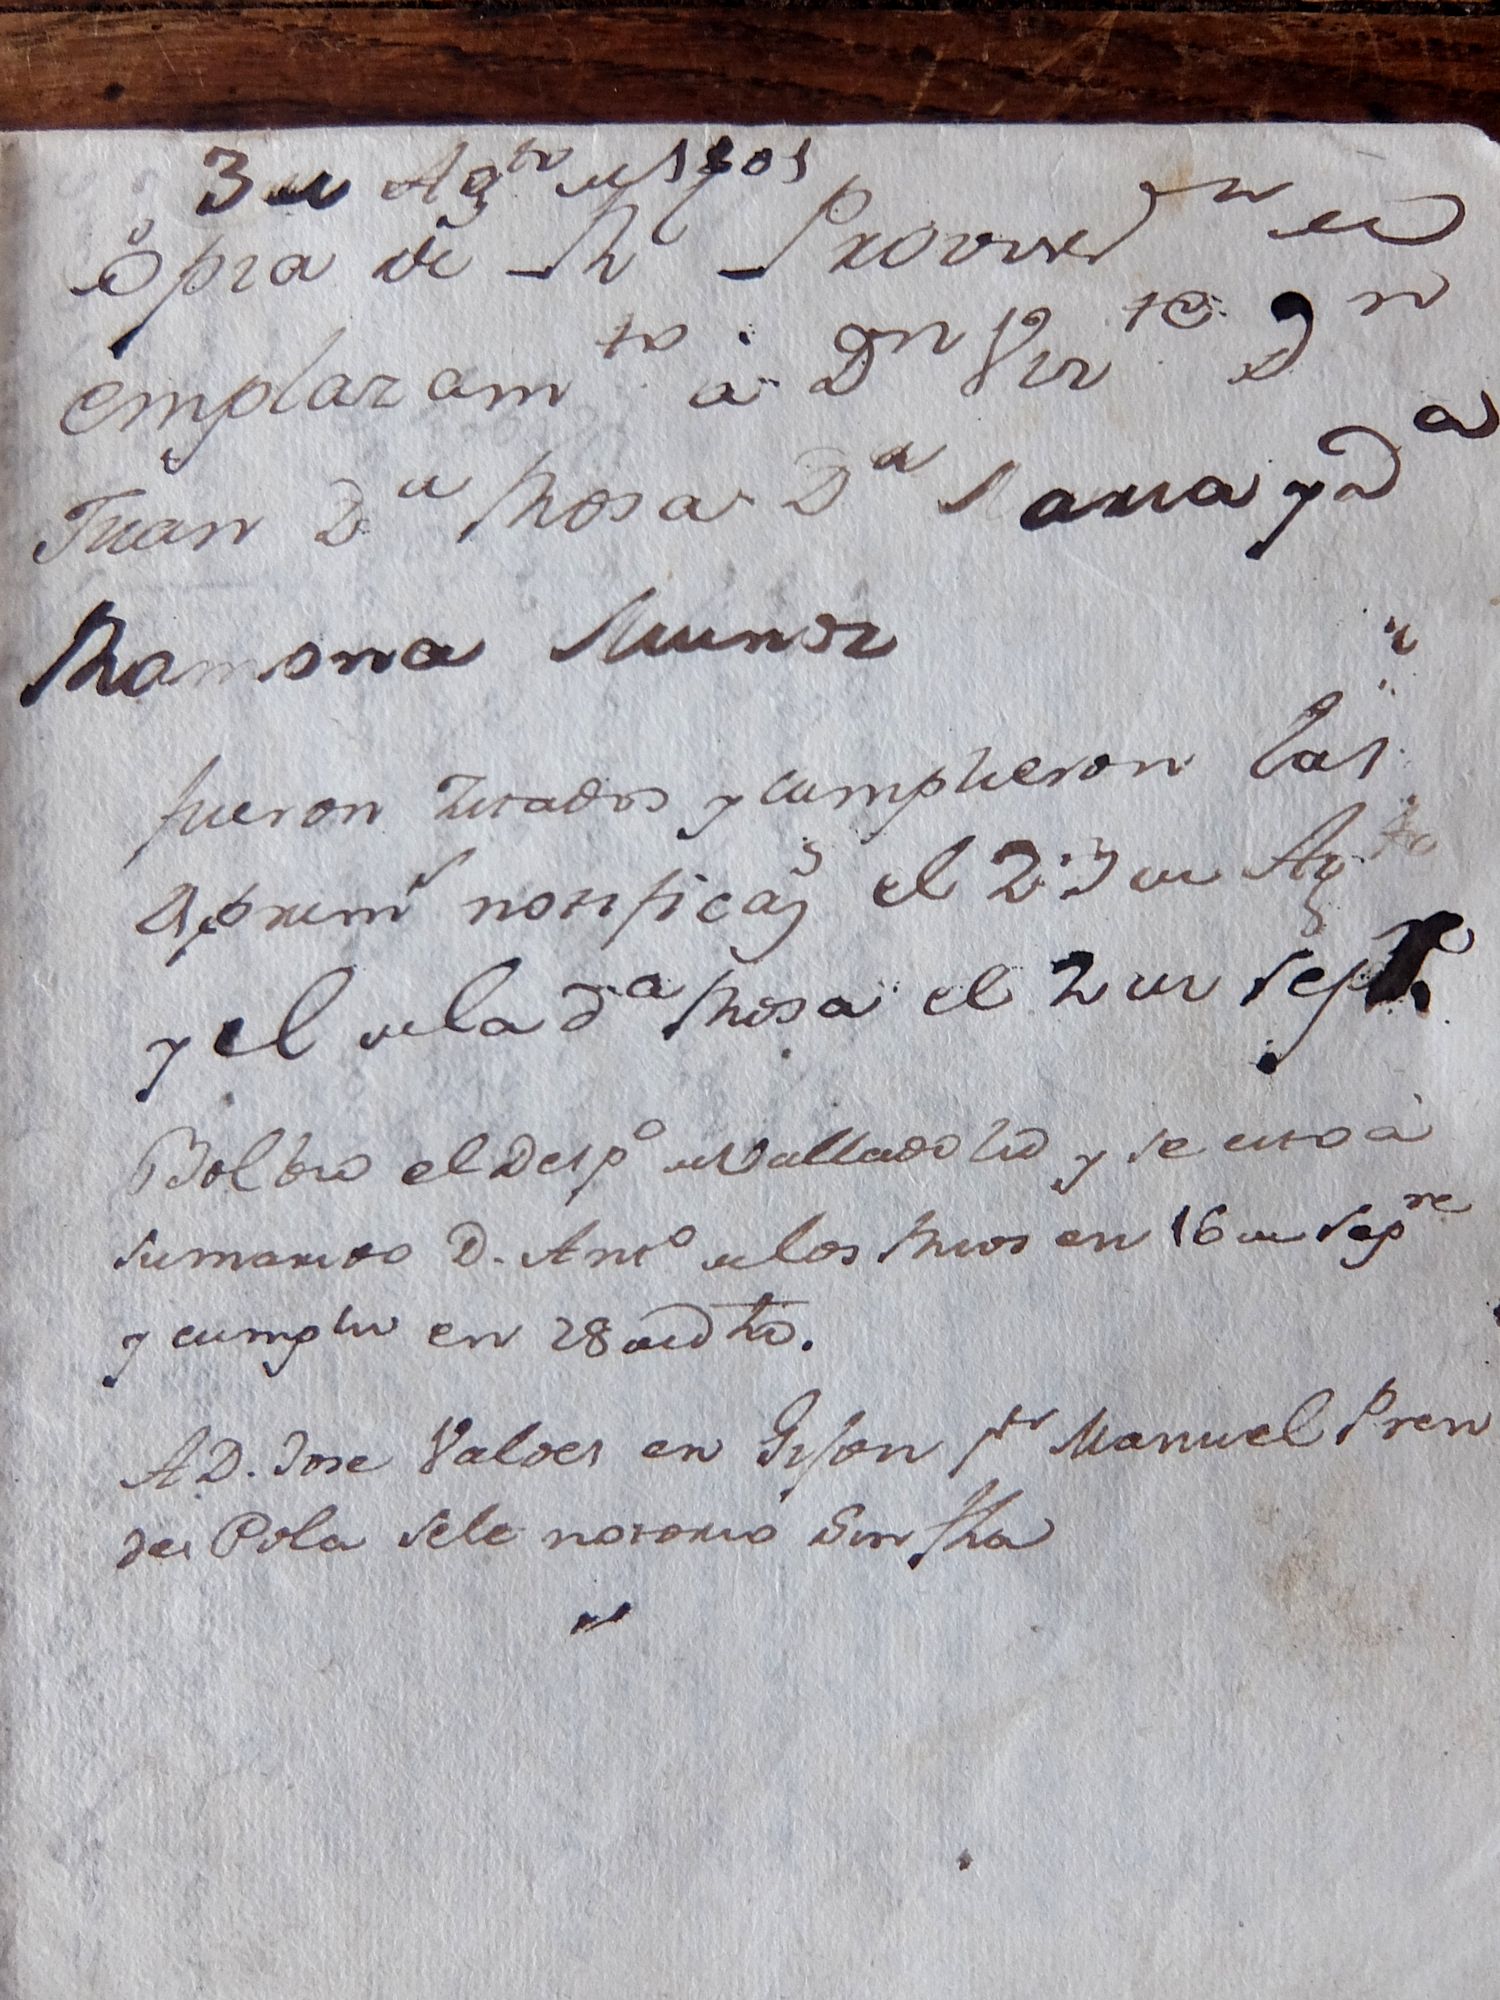 3 de Agto de 1801
Copia de Rl Provision de
emplazamto a Dn Vizte Dn
Juan Da Rosa Da Maria y Da
Ramona Munoz
fueron zitados y cumplieron las
prims notificas el 23 de Agto
y el de la Da Rosa el 2 de Sepre
Bolbio el Despo de Valladolid y se cito a
sumarido D. Anto de los Rios en 16 de Sepre
y cumplio en 28 de dto.
A D. Jose Valdes en Gijon pr Manuel Pren
des Pola sele notorio Sin fha